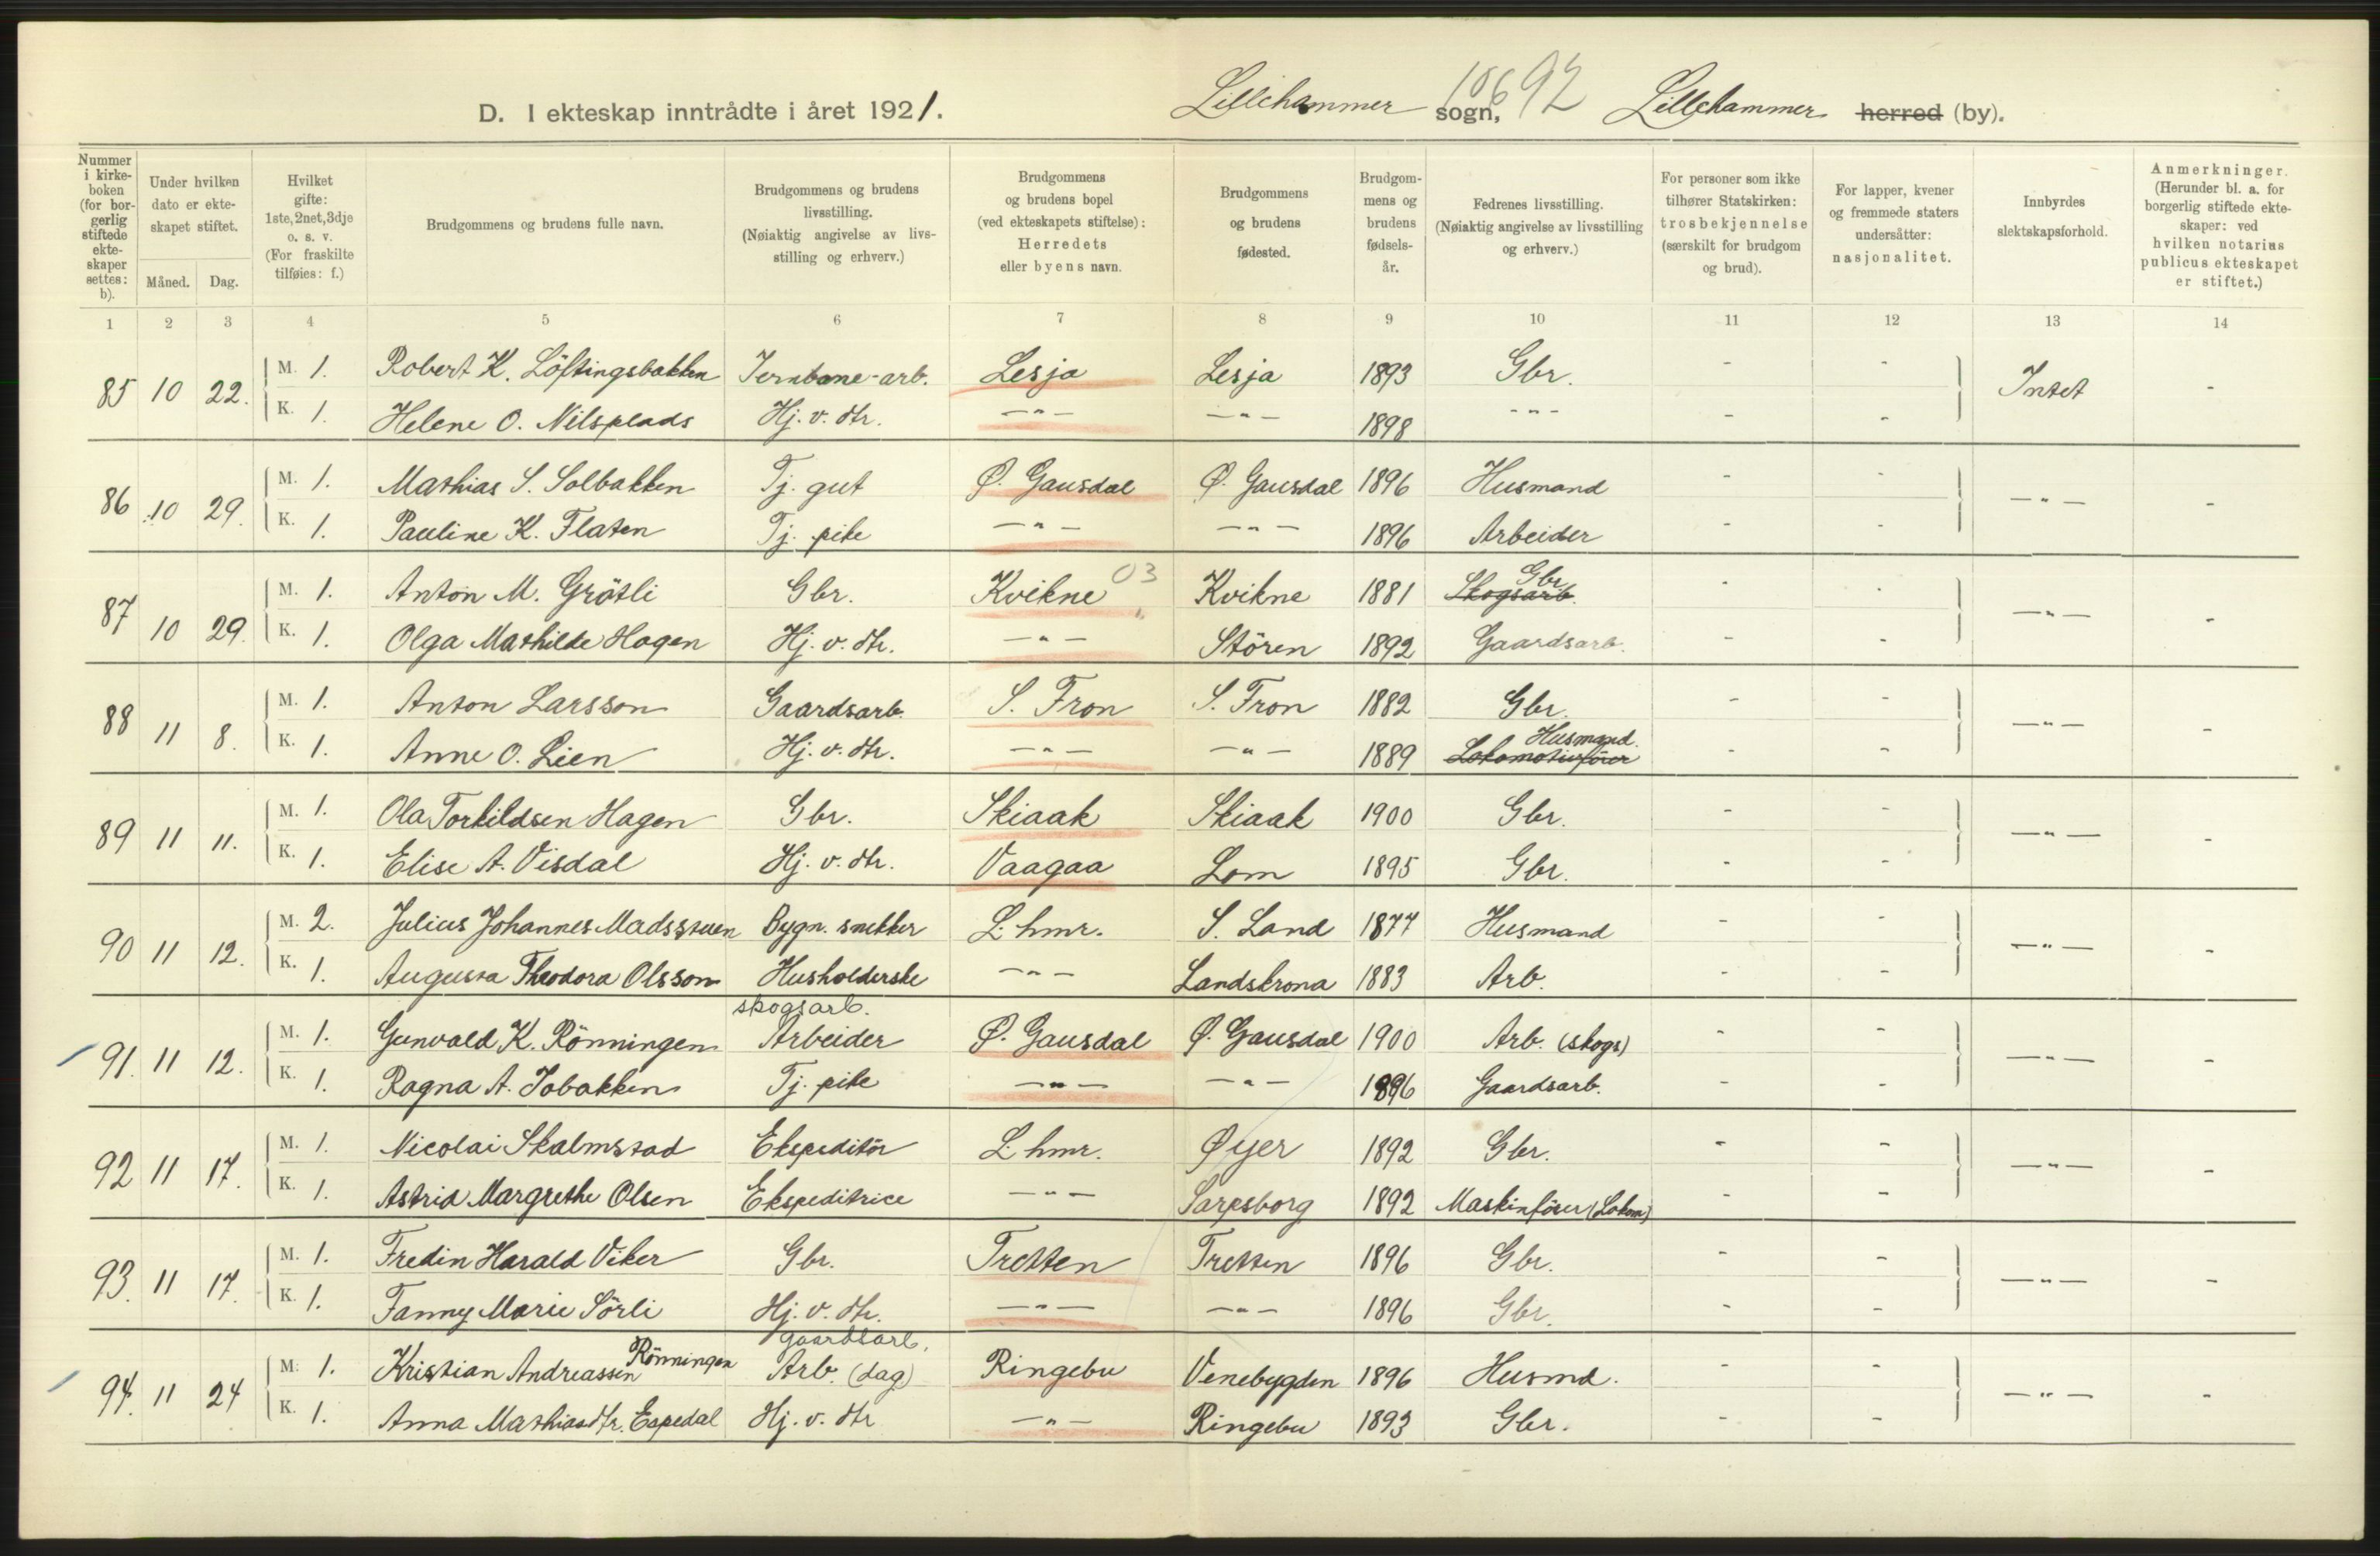 10692
D. I ekteskap inntrådte i året 1921. Lillehammer sogn, Lillehammer herred (by).
Nummer i kirke-boken (for bor-gerlig stiftede ekte-skaper settes: b).
Under hvilken dato er ekte-skapet stiftet.
Måned. Dag.
Hvilket gifte: 1ste, 2net, 3dje o. s. v. (For fraskilte tilføies: f.)
Brudgommens og brudens fulle navn.
Brudgommens og brudens livsstilling. (Nøiaktig angivelse av livs-stilling og erhverv.)
Brudgommens og brudens bopel (ved ekteskapets stiftelse): Herredets eller byens navn.
Brudgommens og brudens fødested.
Brudgom-mens og brudens fødsels-år.
Fedrenes livsstilling. (Nøiaktig angivelse av livsstilling og erhverv.)
For personer som ikke tilhører Statskirken: trosbekjennelse (særskilt for brudgom og brud).
For lapper, kvener og fremmede staters undersåtter: nasjonalitet.
Innbyrdes slektskapsforhold.
Anmerkninger. (Herunder bl. a. for borgerlig stiftede ekte-skaper: ved hvilken notarius publicus ekteskapet er stiftet.)
1 2 3 4 5 6 7 8 9 10 11 12 13 14
85 10 22. M. 1. Robert K. Löftingsbakken Jernbane-arb. Lesja Lesja 1893 Gbr. - - Intet -
K. 1. Helene O. Nilsplads Hj. v. dtr. —"— —"— 1898 -"- - -
86 10 29. M. 1. Mathias S. Solbakken Tj. gut Ø. Gausdal Ø. Gausdal 1896 Husmand - - —"— -
K. 1. Pauline K. Flaten Tj. pike —"— —"— 1896 Arbeider - -
03
87 10 29. M. 1. Anton M. Grötli Gbr. Kvikne Kvikne 1881 Skogsarb. Gbr. - - —"— -
K. 1. Olga Mathilde Hagen Hj. v. dtr. —"— Stören 1892 Gaardsarb. - -
88 11 8. M. 1. Anton Larsson Gaardsarb. S. Fron S. Fron 1882 Gbr. - - —"— -
K. 1. Anne O. Lien Hj. v. dtr. —"— —"— 1889 Lokomotivförer Husmand. - -
89 11 11. M. 1. Ola Torkildsen Hagen Gbr. Skiaak Skiaak 1900 Gbr. - - —"— -
K. 1. Elise A. Visdal Hj. v. dtr. Vaagaa Lom 1895 Gbr. - -
90 11 12. M. 2. Julius Johannes Madsstuen Bygn. snekker L.hmr. S. Land 1877 Husmand - - —"— -
K. 1. Augusta Theodora Olsson Husholderske —"— Landskrona 1883 Arb. - -
skogsarb.
91. 11 12. M. 1. Gunvald K. Rönningen Arbeider Ø. Gausdal Ø. Gausdal 1900 Arb. (skogs) - - —"— -
K. 1. Ragna A. Jobakken Tj. pike —"— —"— 1896 Gaardsarb. - -
92 11 17. M. 1. Nicolai Skalmstad Ekspeditör L.hmr. Øyer 1892 Gbr. - - —"— -
K. 1. Astrid Margrethe Olsen Ekspeditrice —"— Sarpsborg 1892 Maskinförer (Lokom) - -
93. 11 17. M. 1. Fredin Harald Viker Gbr. Tretten Tretten 1896 Gbr. - - —"— -
K. 1. Fanny Marie Sörli Hj. v. dtr. —"— —"— 1896 Gbr. - -
gaardsarb.
94. 11 24 M. 1. Kristian Andreassen Rönningen Arb. (dag) Ringebu Venebygden 1896 Husmd. - - —"— -
K. 1. Anna Mathiasdtr. Espedal Hj. v. dtr —"— Ringebu 1893 Gbr. - -